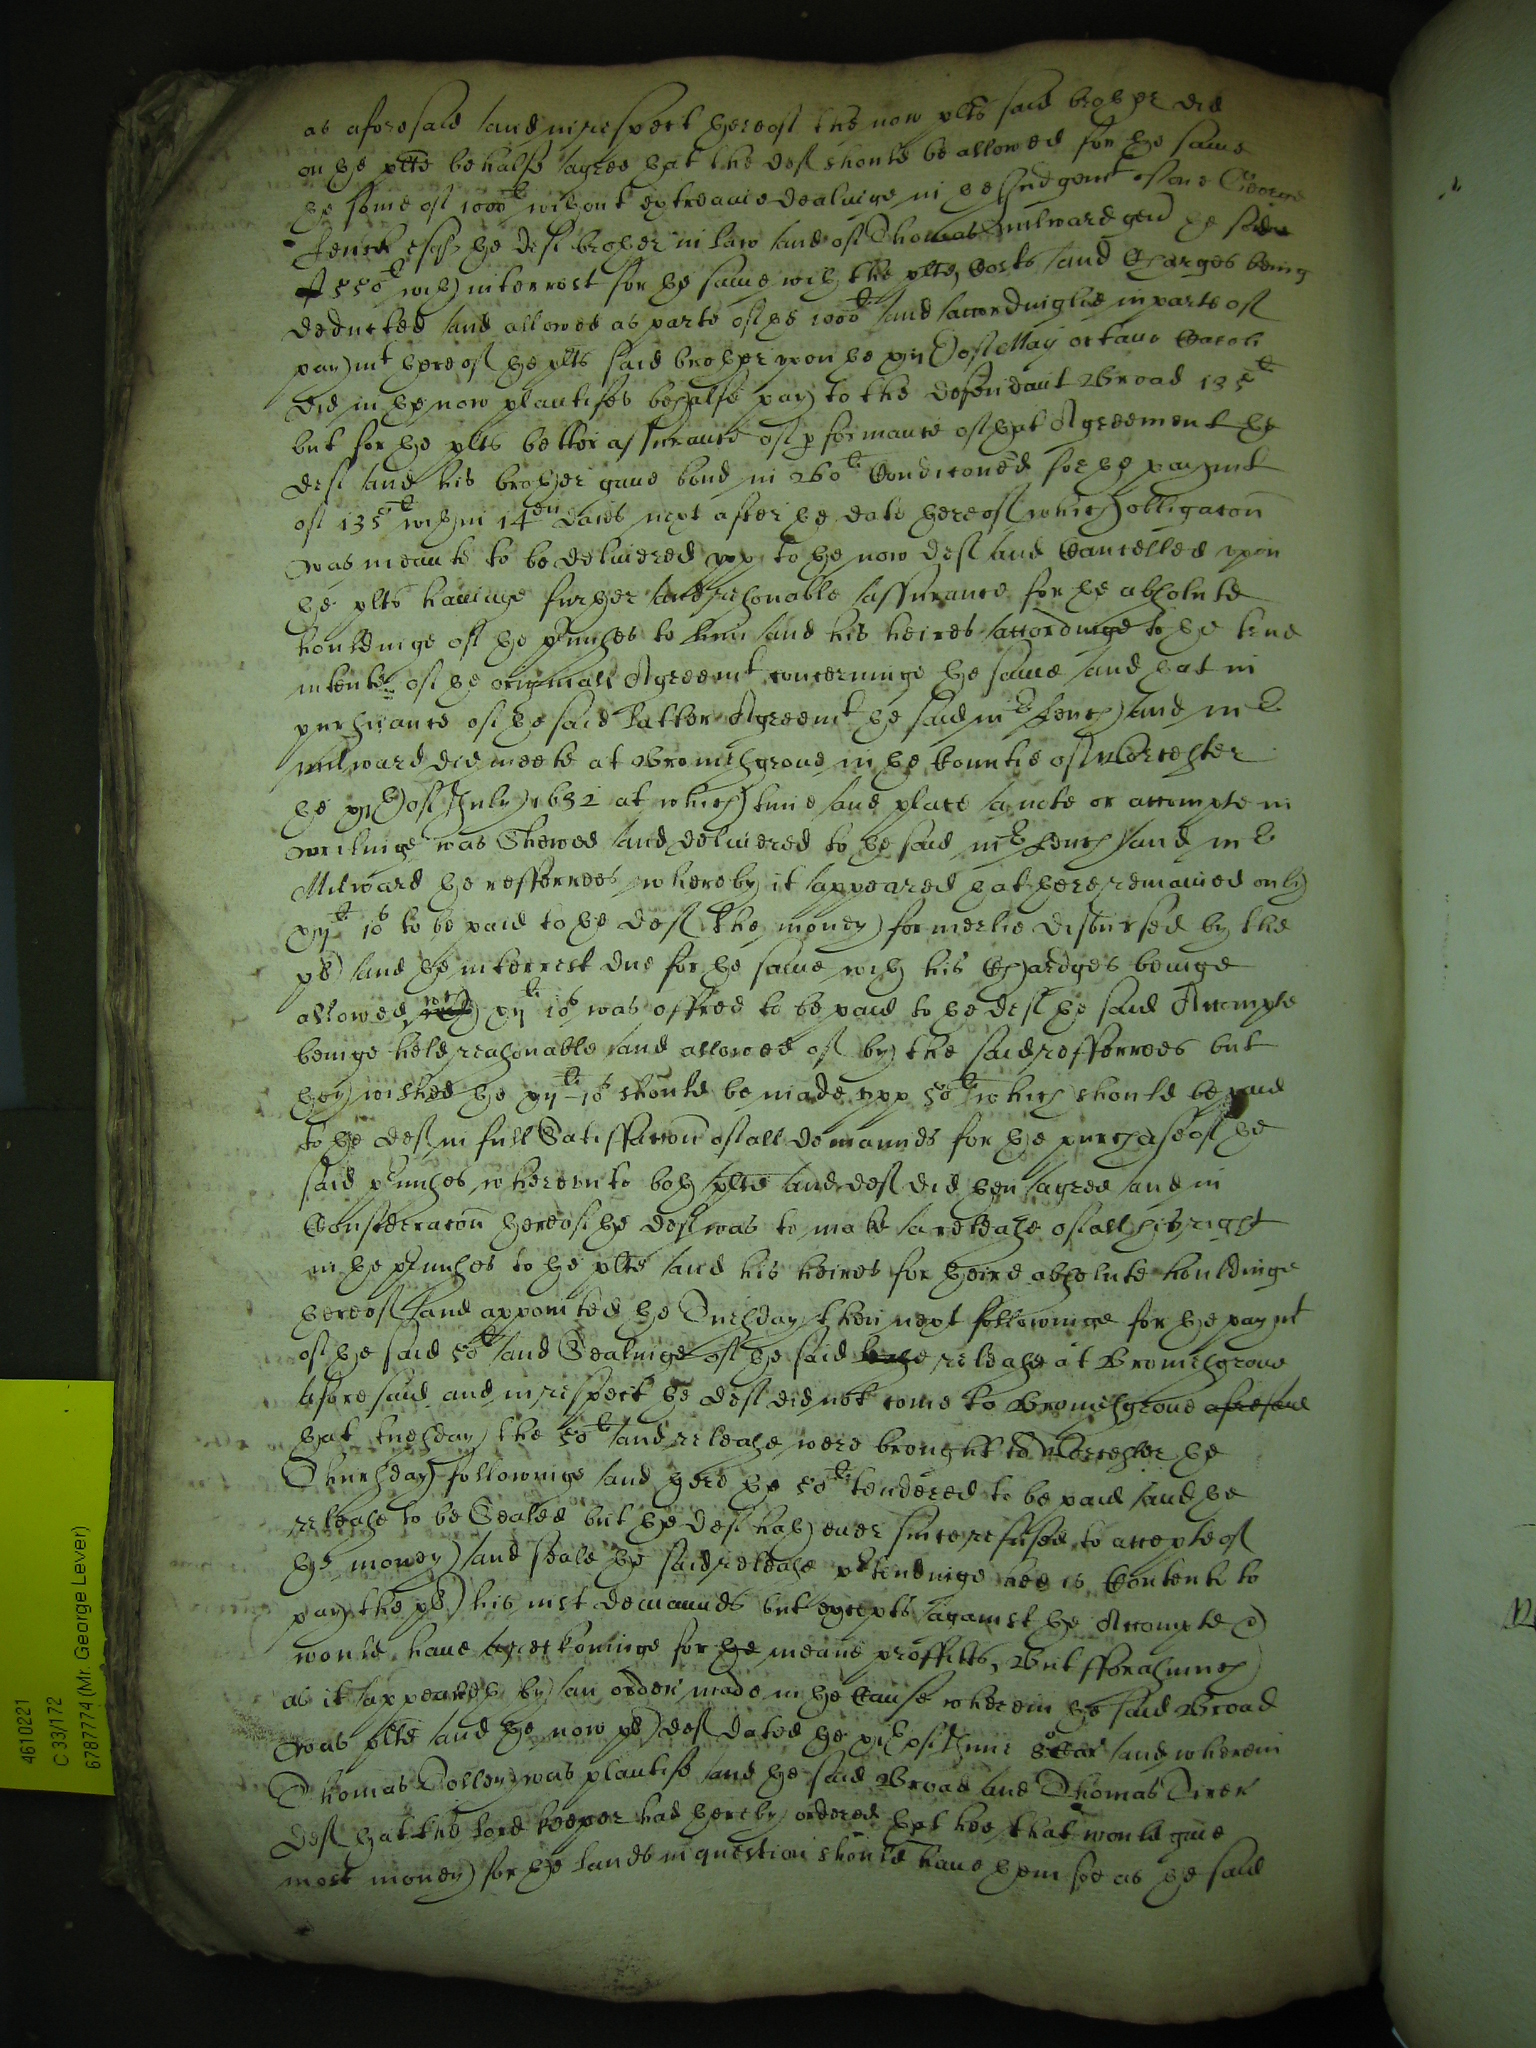 as aforesaid and in respect thereof the now plts said brother did
on the plts behalfe agree that the deft should be allowed for the same
the some of 1000li without extreame dealinge in the Judgemt of one George
Fench esqr the defts brother in law and of Thomas Milward gent the said
550li with interrest for the same with the plts Costs and Charges being
deducted and allowed as parte of the 1000li and accordinglie in parte of
paymt thereof the plts said brother upon the of May octavo Caroli
did in the now plantifes behalfe pay to the defendant Broad 135li
but for the plts better assurance of pformance of that Agreement the
deft and his brother gave bond in 260li Conditoned for the paymt
of 135li within 14en daies next after the date thereof which obligacon
was meante to be delivered upp to the now deft and Cancelled upon
the plts haveinge further and reasonable assurance for the absolute
houldinge of the pmisses to him and his heires accordinge to the true
intente of the originall Agreemt concerninge the same and that in
pursuance of the said latter Agreemt the said mr Fench and mr
Milward did meete at Bromsgrove in the Countie of Worcester
the of July 1632 at which time and place a note or accompte in
writinge was Shewed and delivered to the said mr Fench and mr
Milward the refferrees whereby it appeared that there remained only
xijli 10s to be paid to the deft the money formerlie disbursed by the
pls and the interrest due for the same with his Chardges beinge
allowed wch xijli 10s was offred to be paid to the deft the said Accompte
beinge held reasonable and allowed of by the said refferrees but
they wished the xijli 10s should be made upp 50li which should be paid
to the deft in full Satisffaccon of all demaunds for the purchase of the
said pmisses whereunto both plts and deft did then agree and in
Consideracon thereof the deft was to make a release of all his right
in the pmisses to the plts and his heires for theire absolute houldinge
thereof and appointed the Tuesday then next followinge for the paymt
of the said 50li and Sealinge of the said release at Bromsgrove
aforesaid and in respect the deft did not come to Bromsgrove aforesaid
that tuesday the 50li and release were brought to Worcester the
Thursday followinge and there the 50li tendered to be paid and the
release to be Sealed but the deft hath ever since refused to accepte of
the money and seale the said release ptendinge hee is Contente to
pay the pls his just demaunds but excepts against the Accompte &
would have a reckoninge for the meane proffitts, But fforasmuch
as it appeareth by an order made in the Cause wherein the said Broad
was plte and the now pls deft dated the of June and wherein
Thomas Jolley was plantife and the said Broad and Thomas
deft that the lord keeper had thereby ordered that hee that would give
most money for the lands in question should have them soe as the said
4610221
C 33/172
6787774 (Mr. George Lever)